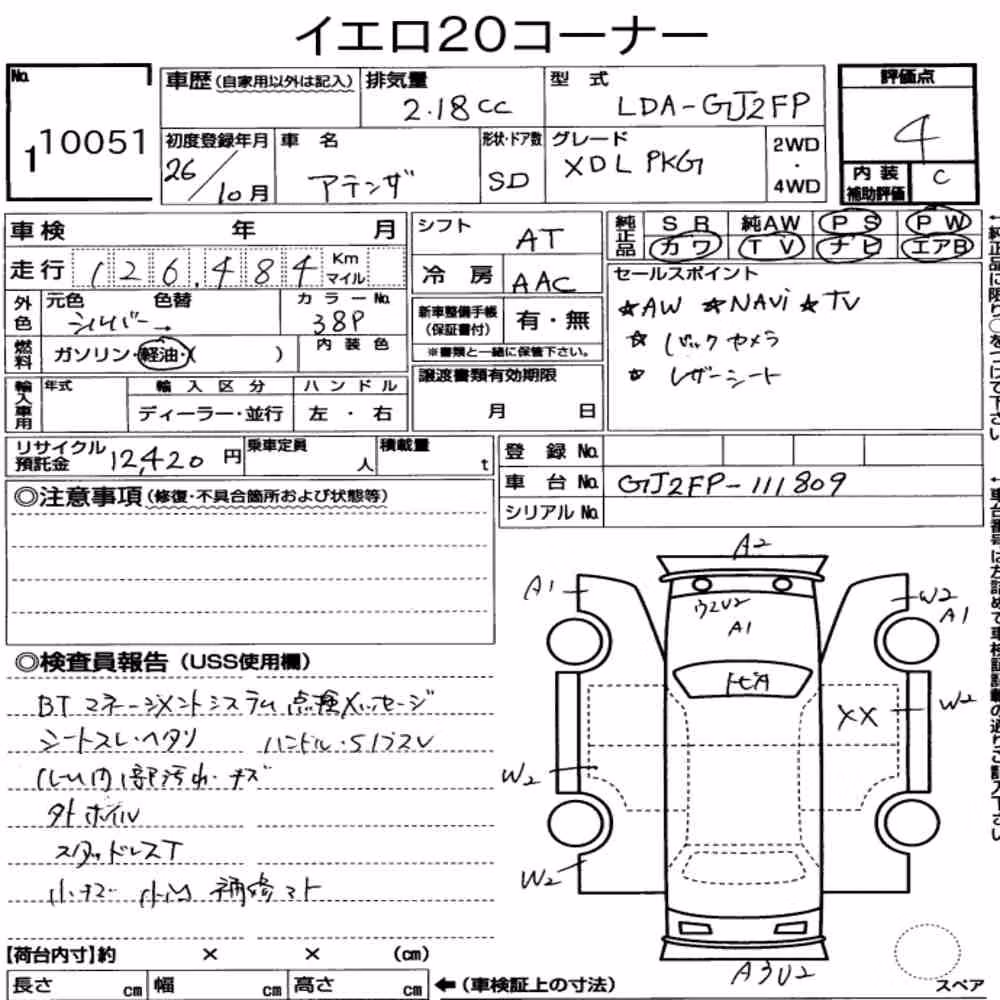 イエロ20コーナー
No. 1 10051
車歴 (自家用以外は記入) 排気量 2.18cc 型 式 LDA-GJ2FP
初度登録年月 26/10月 車 名 アテンザ 形状・ドア数 SD グレード XDL PKG 2WD ・ 4WD
評価点 4
内 装 補助評価 C
車検 年 月
走行 126,484 Km マイル
外色 元色 シルバー → 色替 カラーNo. 38P
燃料 ガソリン・軽油・( ) 内装色
輸入車用 年式 輸入区分 ディーラー・並行 ハンドル 左・右
シフト AT
冷 房 AAC
新車整備手帳 (保証書付) 有・無
※書類と一緒に保管下さい。
譲渡書類有効期限
月 日
純正品 SR 純AW PS PW
カワ TV ナビ エアB
セールスポイント
☆AW ☆NAVi ☆TV
☆ バックカメラ
☆ レザーシート
←純正品に限り○をつけて下さい
リサイクル預託金 12,420 円 乗車定員 人 積載量 t
登 録 No.
車 台 No. GJ2FP-111809
シリアル No.
←車台番号は左詰めで車検証記載の通りご記入下さい
◎注意事項 (修復・不具合箇所および状態等)
◎検査員報告 (USS使用欄)
BTマネージメントシステム点検メッセージ
シートスレ・ヘタリ ハンドル・Sノブスレ
ルーム内部汚れ・キズ
外ホイル
スタッドレスT
小キズ 小凹 補修アト
A2
A1
W2
A1
ワレU2
A1
トビA
XX
W2
W2
W2
A3U2
スペア
【荷台内寸】約 × × (cm)
長さ cm 幅 cm 高さ cm ←(車検証上の寸法)